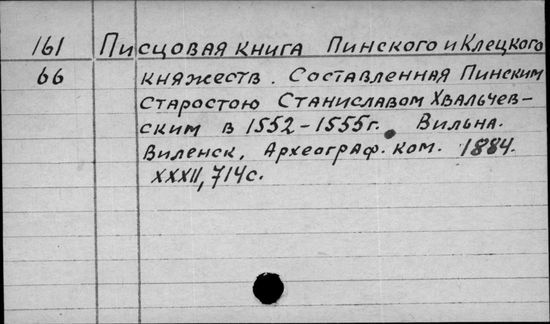 161 Писцовая книга Пинского и Клецкого
66 княжеств. Составленная Пинским
старостою Станиславом Хвальчев-
ским в 1552-1555г. Вильна.
Виленск, Археограф. ком. 1884.
XXXII, 714с.